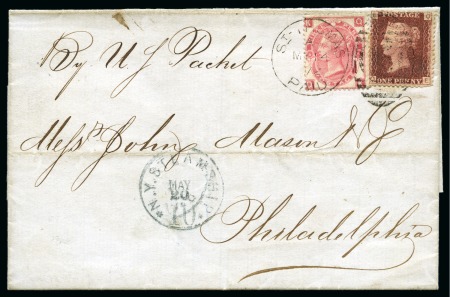 By U S Packet
POSTAGE
ONE PENNY
PAID
Messrs John Mason & Co
N.Y. STEAMSHIP
MAY
20
10
Philadelphia